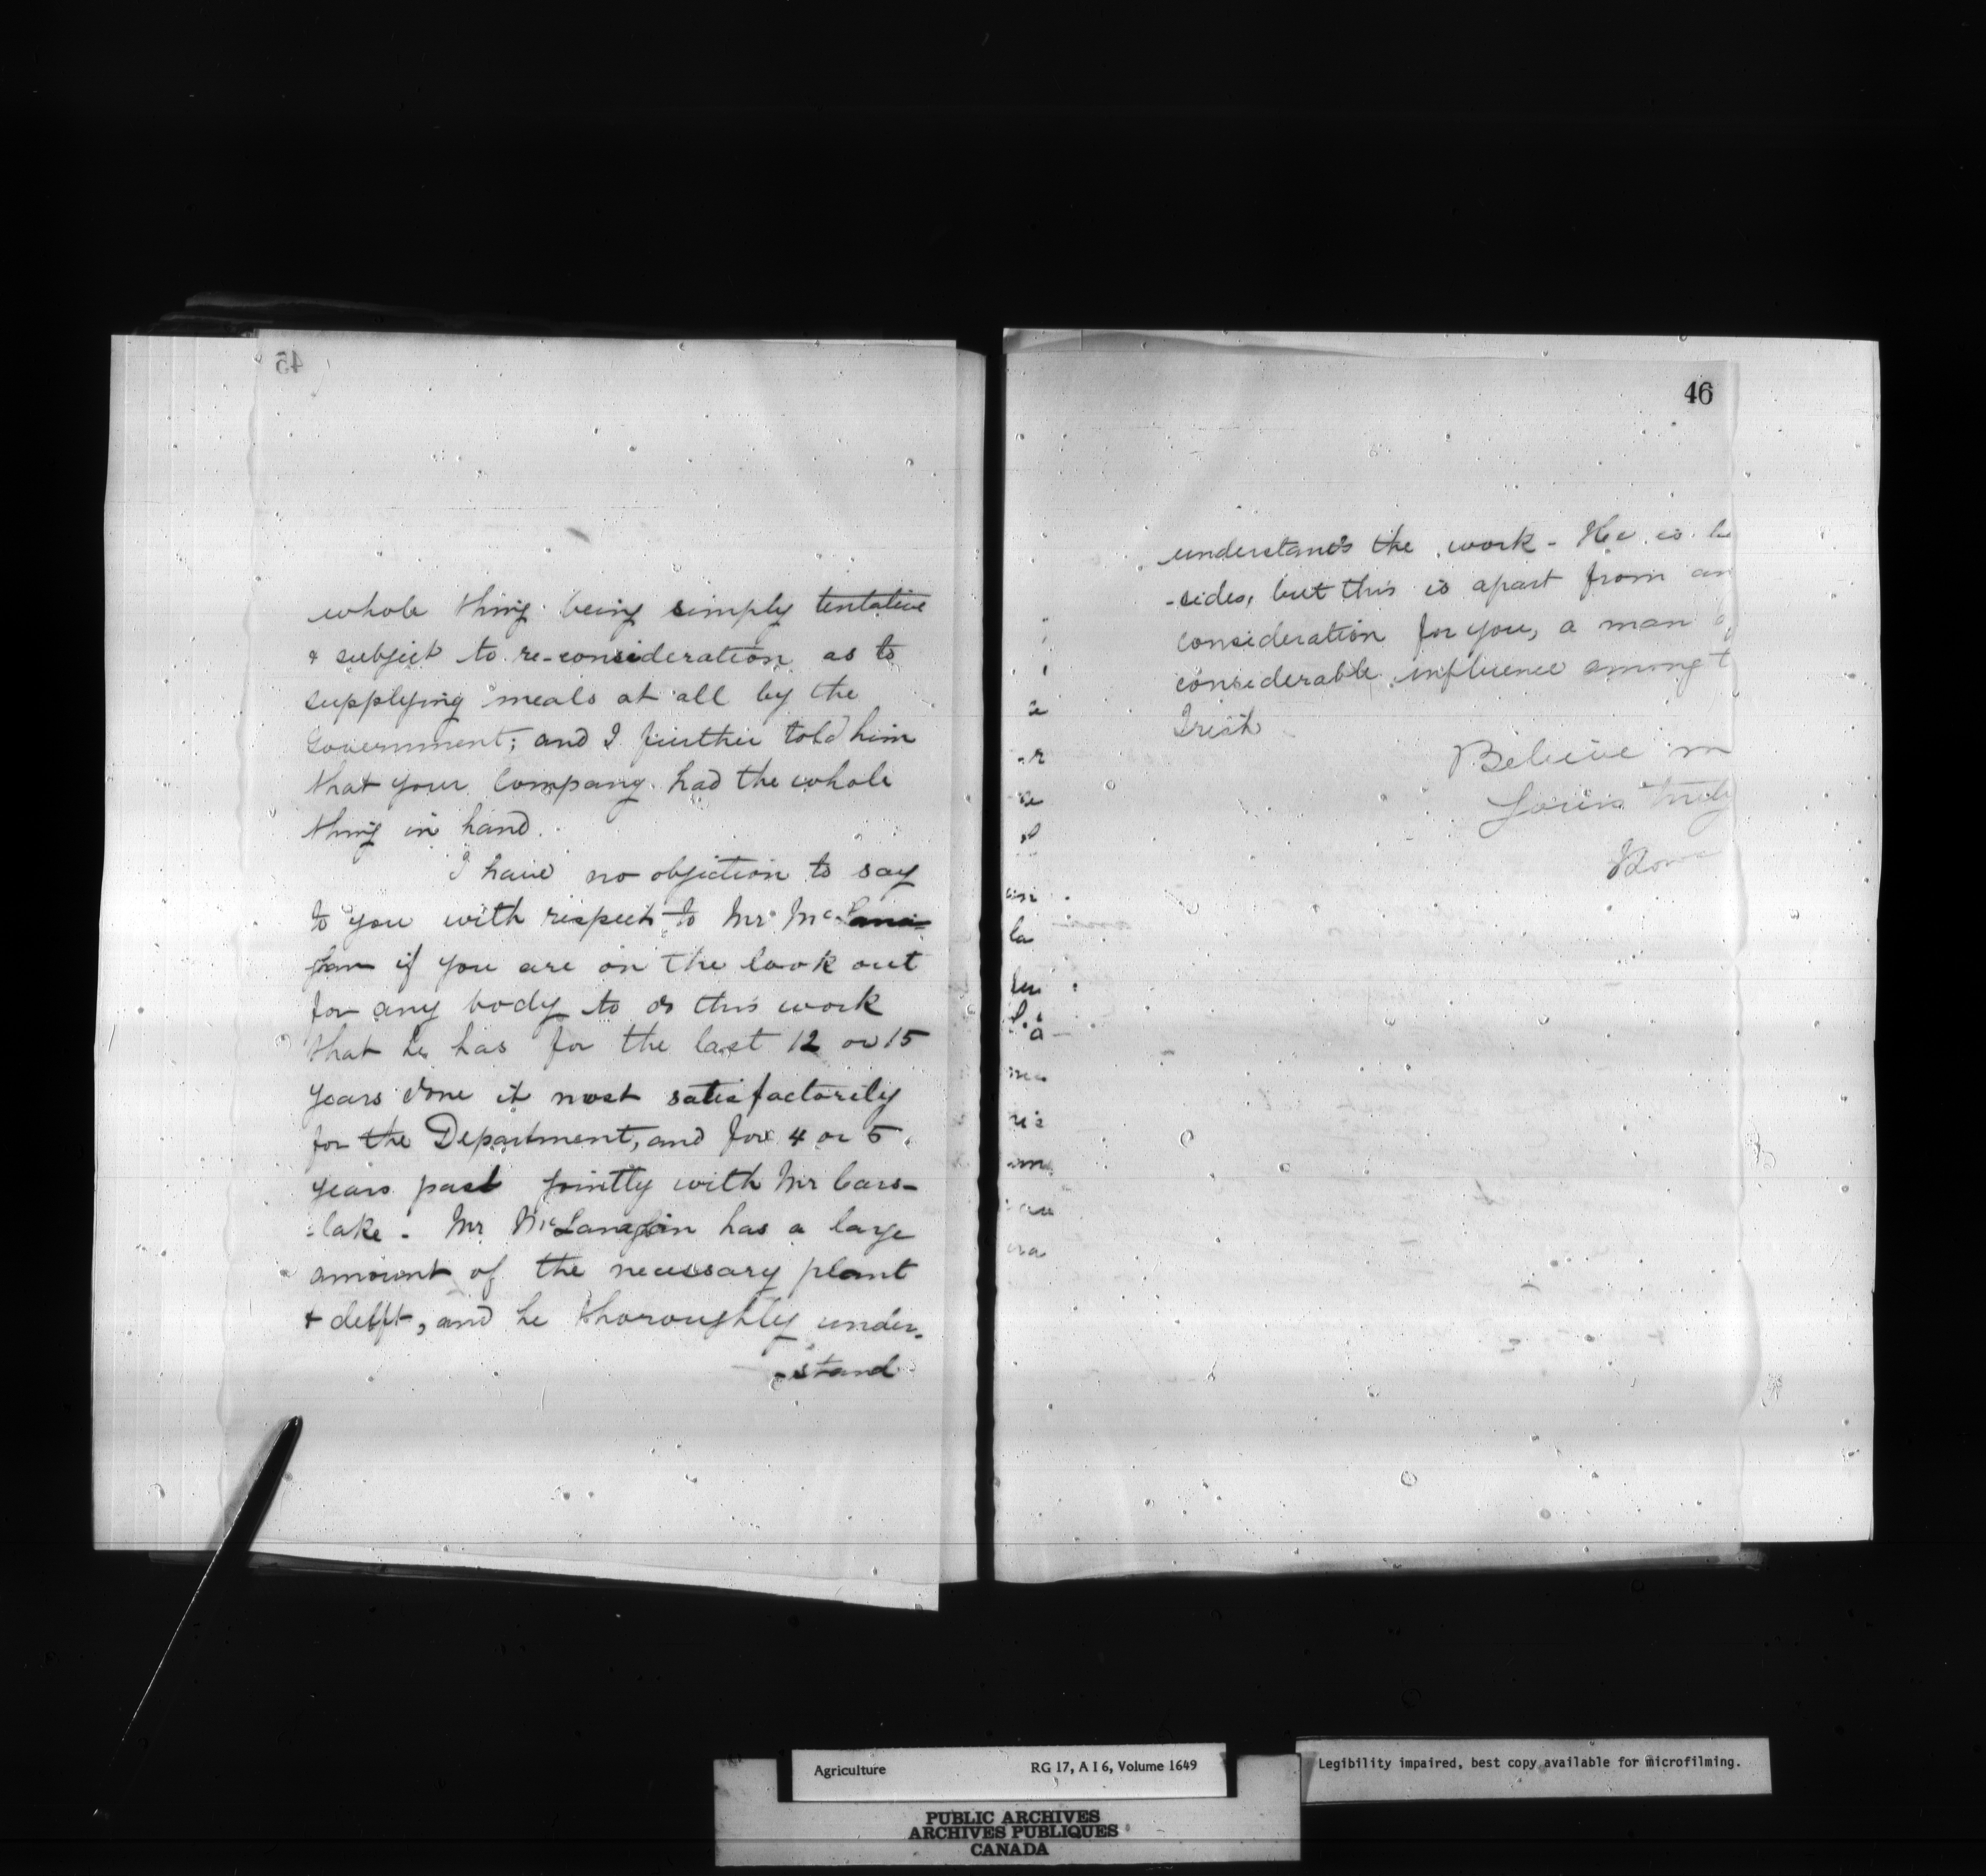 45
whole thing being simply tentative
& subject to re-consideration as to
supplying meals at all by the
Government; and I further told him
that your Company had the whole
thing in hand.
I have no objection to say
to you with respect to Mr
if you are on the look out
for any body to do this work
that he has for the last 12 or 15
years done it most satisfactorily
for the Department, and for 4 or 5
years past jointly with Mr Cars-
-lake. Mr has a large
amount of the necessary plant
& delft, and he thoroughly under-
-stand
46
understands the work - He is be
-sides, but this is apart from an
consideration for you, a man
considerable influence among t
Irish
Believe m
Yours truly
Agriculture RG 17, A I 6, Volume 1649
Legibility impaired, best copy available for microfilming.
PUBLIC ARCHIVES
ARCHIVES PUBLIQUES
CANADA